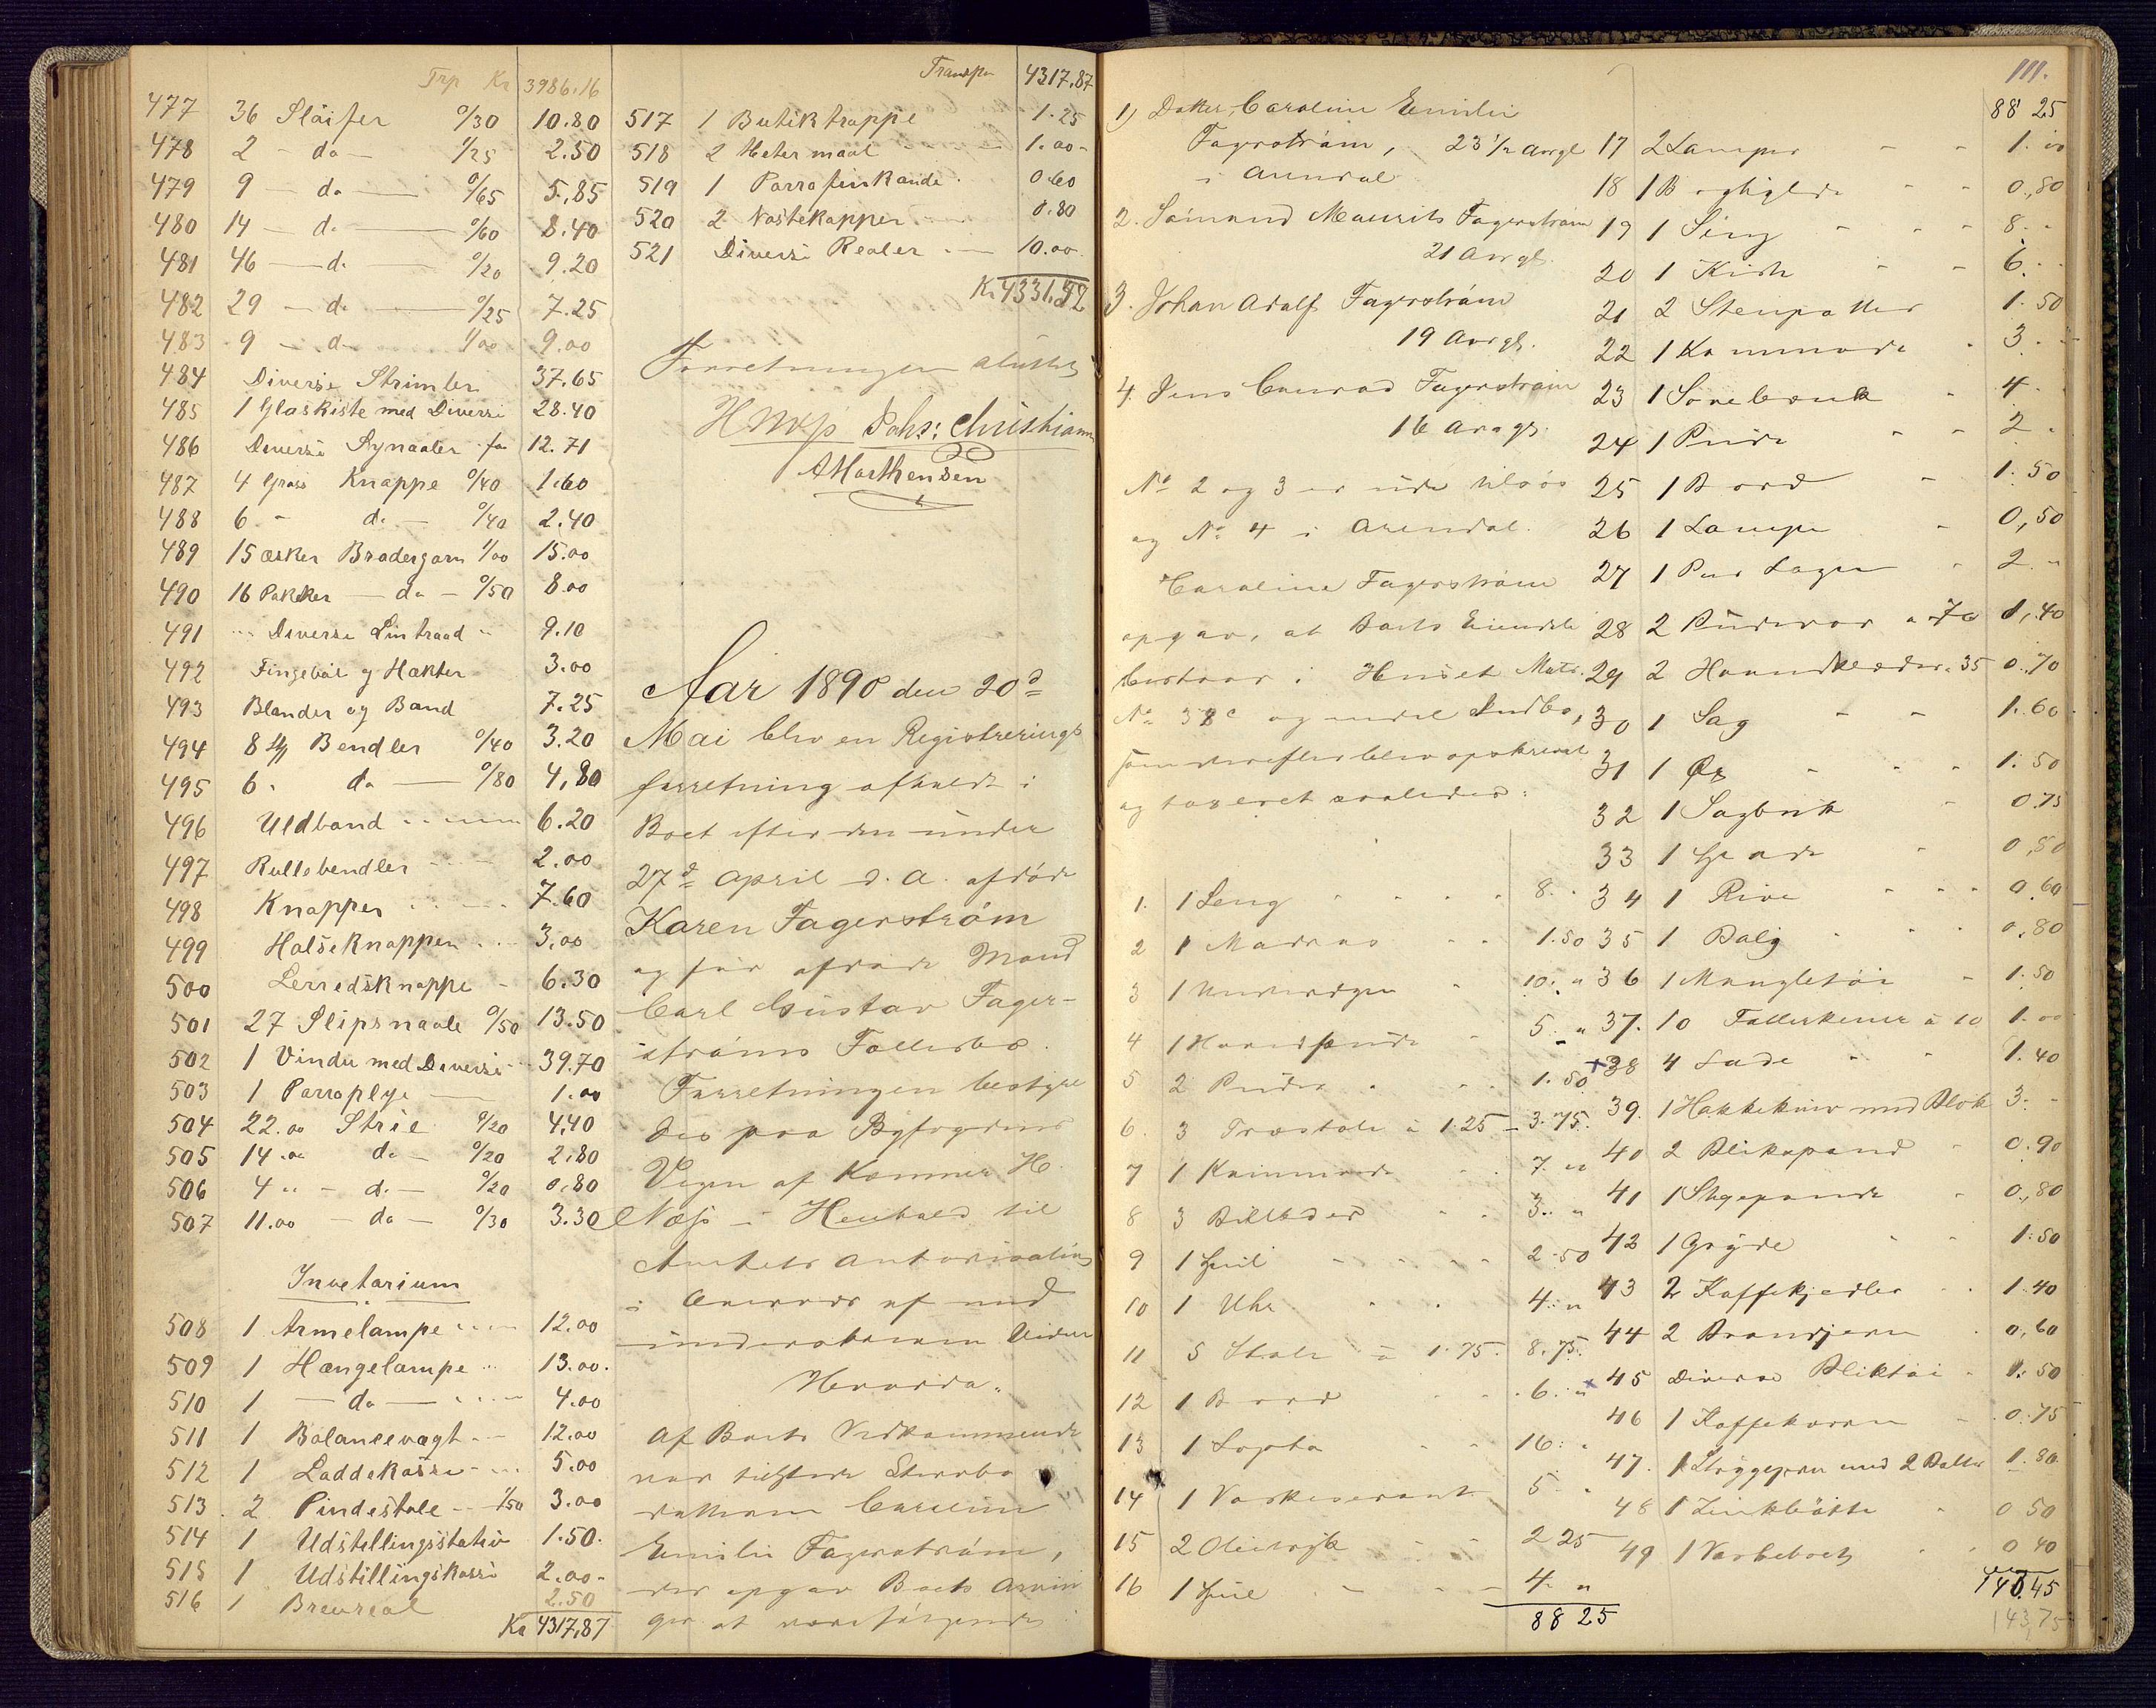 Trp Kr 3986.16
477 36 Slöifer 0/30 10.80
478 2 - do - 1/25 2.50
479 9 - do - 0/65 5,85
480 14 - do - 0/60 8.40
481 46 - do - 0/20 9.20
482 29 - do - 0/25 7.25
483 9 - do - 1/00 9.00
484 Diverse Strimler 37.65
485 1 Glaskiste med Diverse 28.40
486 Diverse Synaaler for 12.71
487 4 Gross Knappe 0/40 1.60
488 6 - do - 0/40 2.40
489 15 æsker Brodergarn 1/00 15.00
490 16 Pakker - do - 0/50 8.00
491 Diverse Lintraad 9.10
492 Fingebøl og Hækter 3.00
493 Blander og Band 7.25
494 8 Bendler 0/40 3.20
495 6 do - 0/80 4,80
496 Uldband 6.20
497 Rullebendler 2.00
498 Knapper 7.60
499 Halseknapper 3,00
500 Lerredsknappe - 6.30
501 27 Slipsnaale 0/50 13.50
502 1 Vindu med Diverse 39.70
503 1 Parraplye 1.00
504 22.00 Strie 0/20 4,40
505 14.00 do - 0/20 2.80
506 4 " - do - 0/20 0.80
507 11.00 - do - 0/30 3.30
Invetarium
508 1 Armelampe 12.00
509 1 Hængelampe 13.00.
510 1 - do - 4.00
511 1 Balancevægt 12.00
512 1 Laddekasse 5.00
513 2 Pindestole 1/50 3.00
514 1 Udstillingsstativ 1.50.
515 1 Udstillingskasse 2.00-
516 1 Brevreal 2.50
Kr 4317,87
Transpr 4317.87
517 1 Butiktrappe 1.25
518 2 Metermaal 1.00-
519 1 Parrafinkande 0.60
520 2 Nøstekopper 0.80
521 Diverse Realer 10.00
Kr 4331.52
Forretningen sluttet
H Næss Johs: Christiansen
AMarthensen
Aar 1890 den 20d
Mai blev en Registrerings
forretning afholdt i
Boet efter den under
27d April d. A. afdøde
Karen Fagerstrøm
og før afdøde Mand
Carl Gustav Fager-
strøms Fællesbo.
Forretningen bestyre
des paa Byfogdens
Vegne af Kammer H.
Næss i Henhold til
Amtets Autorisation
i Overvær af med
underskrevne Vidner
Hvorda.
Af Boets Vedkommende
var tilstede Sterbo
datteren Caroline
Emilie Fagerstrøm,
der opgav Boets Arvin
ger at være følgende:
111.
1) Datter, Caroline Emilie
Fagerstrøm, 23 1/2 Aargl
i Arendal
2. Sømand Maurits Fagerstrøm
21 Aargl.
3. Johan Adolf Fagerstrøm
19 Aargl.
4. Jens Conrad Fagerstrøm
16 Aargl.
No 2 og 3 er ude tilsøs
og No 4 i Arendal.
Caroline Fagerstrøm
opgav, at Boets Eiendele
bestaar i Huset Matr.
No 38c og endel Indbo,
som derefter blev opskrevet
og taxeret saaledes:
1. 1 Seng 8.
2 1 Madras 1.50
3 1 Underdyne 10. "
4 1 Hovedpude 5. "
5 2 Puder 1.50
6. 3 Træstole a 1.25 - 3.75.
7 1 Kommode 7. "
8 3 Billeder 3. "
9 1 Speil 2.50
10 1 Uhr 4. "
11 5 Stole a 1.75. 8.75.
12 1 Bord 6. "
13 1 Sopha 16.
14 1 Vaskeservant 5.
15 2 2 25
16 1 Speil 4. "
88 25
88 25
17 2 Lamper 1.00
18 1 0,80
19 1 Seng 8.
20 1 Kiste 6.
21 2 Stenpotter 1.50
22 1 Kommode 3.
23 1 Sovebænk 4.
24 1 Pude 2.
25 1 Bord 1.50
26 1 Lampe 0,50
27 1 Par Lagen 2.
28 2 Pudevar a 70 1,40
29 2 Haandklæder a 35 0.70
30 1 Sag 1.60
31 1 Øx 1.50
32 1 Sagbuk 0.75
33 1 Spade 0,80
34 1 Rive 0.60
35 1 Balje 0,80
36 1 Mangletøi 1.50
37. 10 Tallerkener a 10 1.00
+38 4 Fade 1.40
39. 1 Hakkekniv med Blok 3.
40 2 Blikspand 0.90
41 1 Stegepande 0,80
42 1 Gryde 1.50
43 2 Kaffekjedler 1.40
44 2 Brandjern 0,60
+45 Diverse Bliktøi 1.50
46 1 Kaffekværn 0.75
47. 1 Strygejern med 2 Bolter 1.80
48 1 Zinkbøtte 0 50
49 1 Vaskebræt 0 40
140.45
143,75